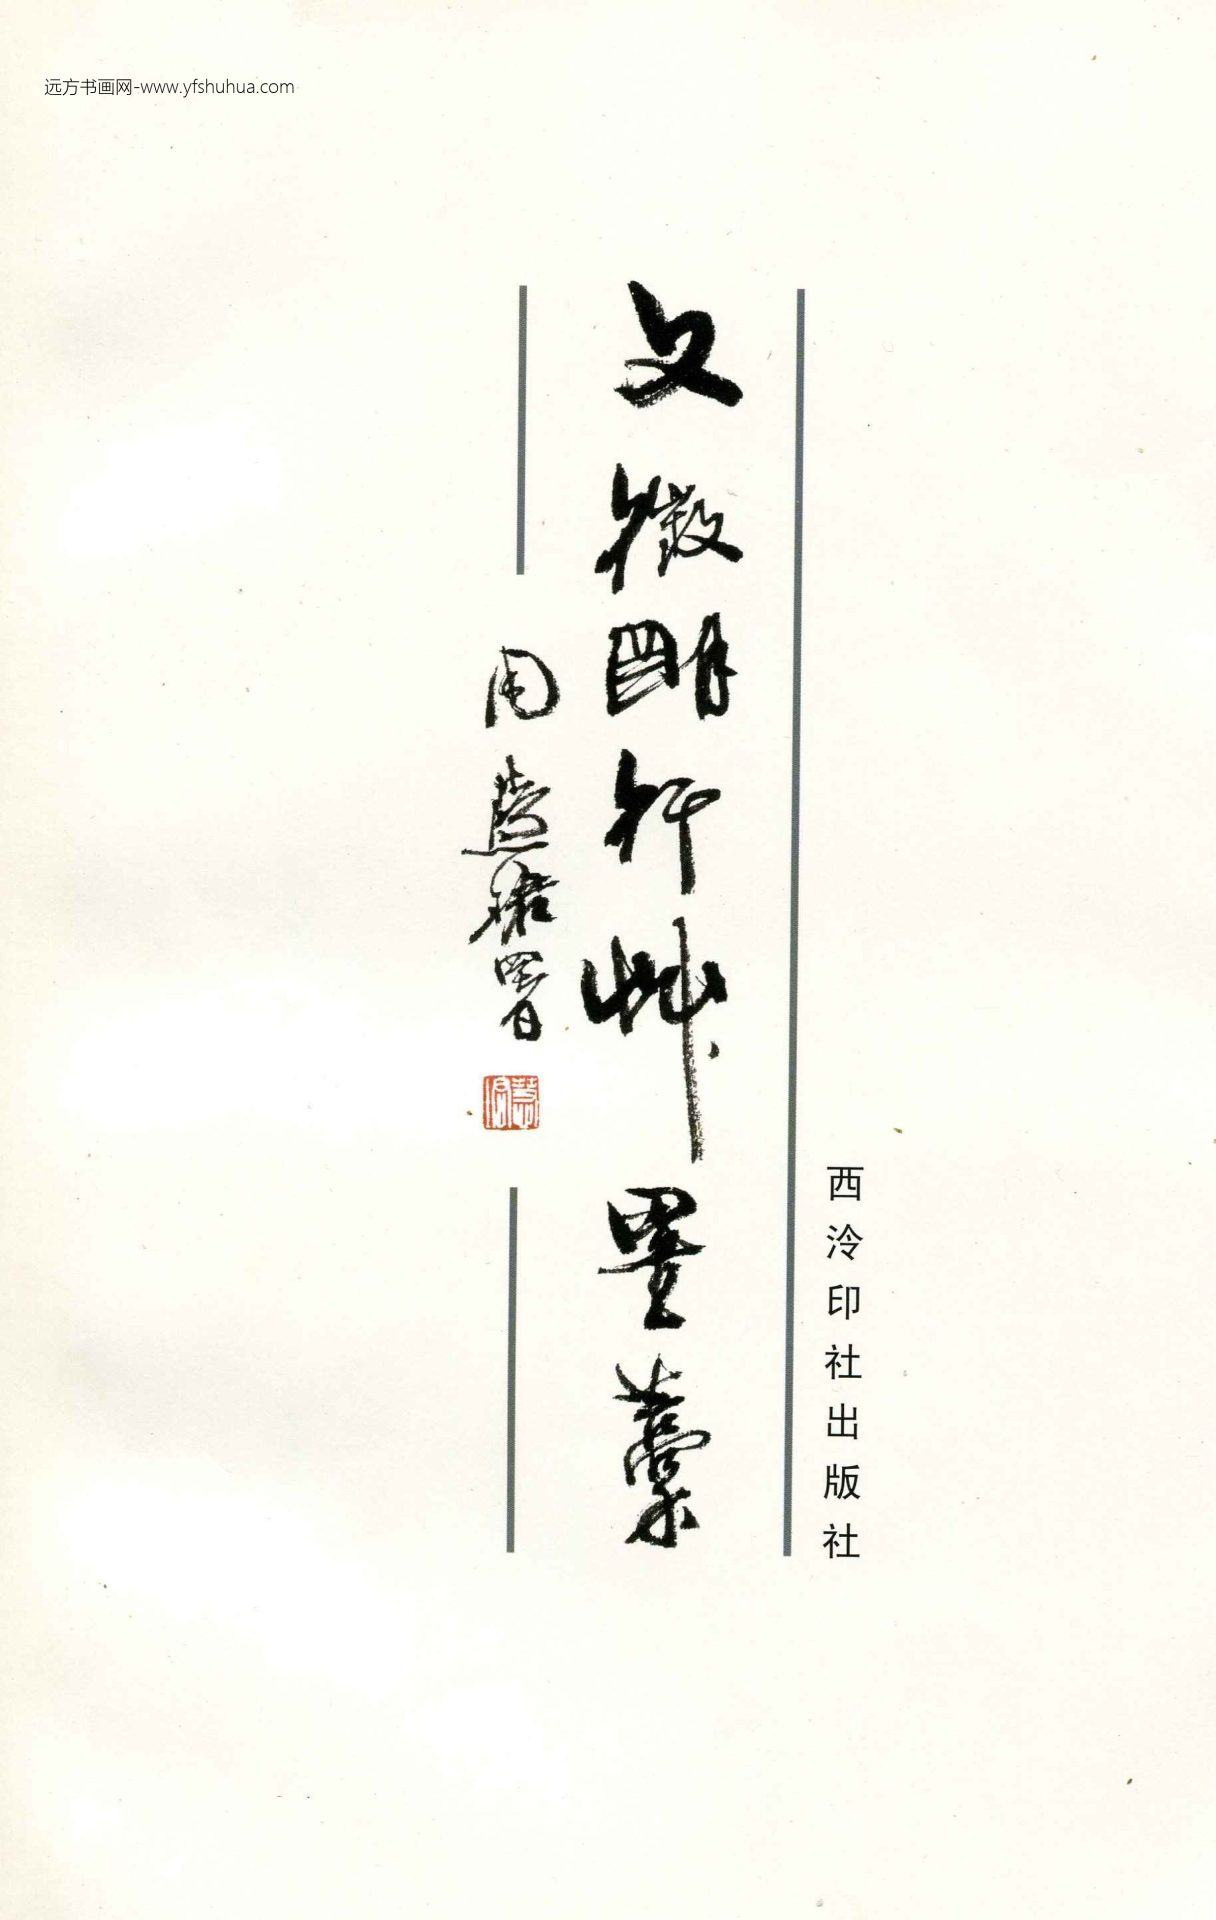 远方书画网-www.yfshuhua.com
西泠印社出版社
文徵明行艸墨藁
周慧珺署
慧珺